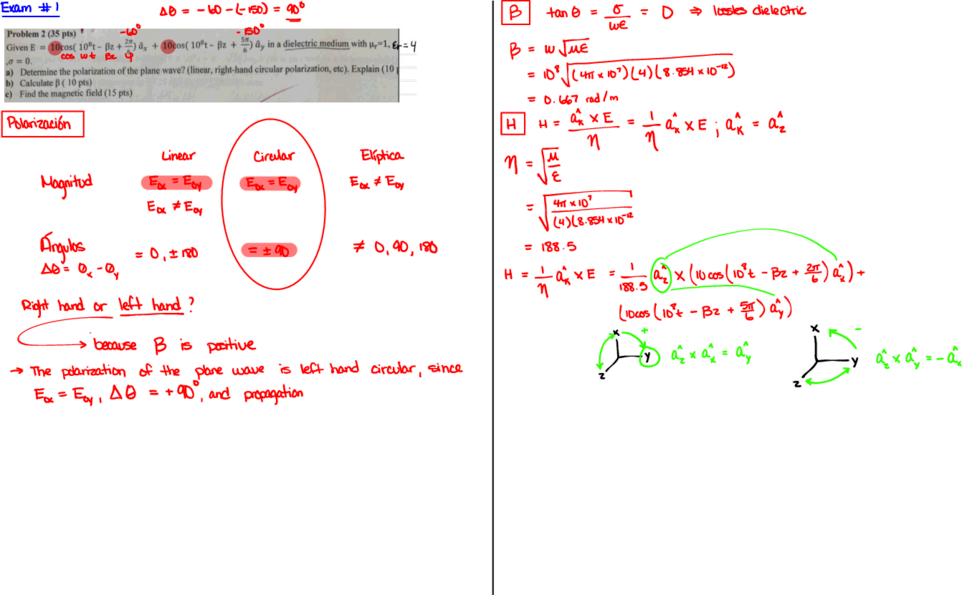 Exam #1
Δθ = -60 -(-150) = 90°
Problem 2 (35 pts)
-60° -150°
Given E = 10cos( 10⁸t - βz + 2π/6 ) âₓ + 10cos( 10⁸t - βz + 5π/6 ) âᵧ in a dielectric medium with μᵣ=1, εᵣ = 4
cos wt βz φ
,σ = 0.
a) Determine the polarization of the plane wave? (linear, right-hand circular polarization, etc). Explain (10
b) Calculate β ( 10 pts)
c) Find the magnetic field (15 pts)
Polarización
Linear Circular Elíptica
Magnitud E₀ₓ = E₀ᵧ E₀ₓ = E₀ᵧ E₀ₓ ≠ E₀ᵧ
E₀ₓ ≠ E₀ᵧ
Ángulos = 0, ± 180 = ± 90 ≠ 0, 90, 180
Δθ = θₓ - θᵧ
Right hand or left hand?
because β is positive
→ The polarization of the plane wave is left hand circular, since
E₀ₓ = E₀ᵧ, Δθ = +90°, and propagation
β tan θ = σ/ωε = 0 ⇒ lossles dielectric
β = ω√με
= 10⁸ √(4π x 10⁷)(4)(8.854 x 10⁻¹²)
= 0.667 rad/m
H H = âₖ x E / η = 1/η âₖ x E ; âₖ = â_z
η = √μ/ε
= √4π x 10⁷ / (4)(8.854 x 10⁻¹²
= 188.5
H = 1/η âₖ x E = 1/188.5 â_z x (10cos(10⁸t - βz + 2π/6) âₓ) +
(10cos(10⁸t - βz + 5π/6) âᵧ)
x + x -
y â_z x âₓ = âᵧ y â_z x âᵧ = -âₓ
z z